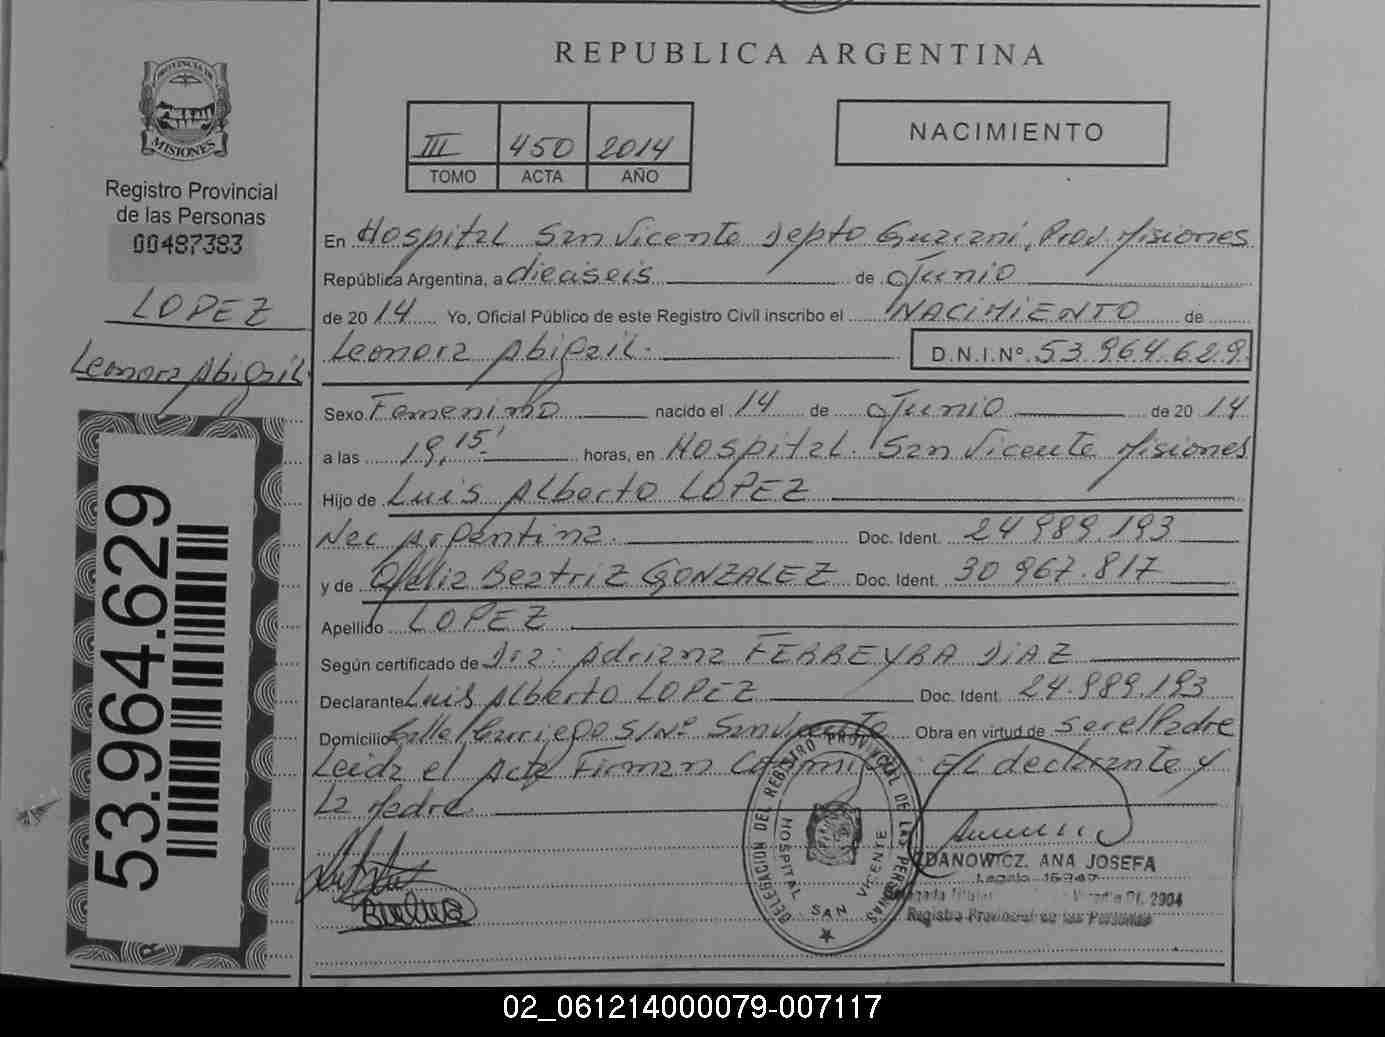 REPUBLICA ARGENTINA
PROVINCIA DE
MISIONES
Registro Provincial
de las Personas
00487383
LOPEZ
Leonora Abigail.
53.964.629
III 450 2014
TOMO ACTA AÑO
NACIMIENTO
En Hospital San Vicente Depto Guarani, Prov. Misiones
República Argentina, a dieciseis de Junio
de 2014 Yo, Oficial Público de este Registro Civil inscribo el NACIMIENTO de
Leonora Abigail. D.N.I.Nº 53.964.629
Sexo Femenino nacido el 14 de Junio de 2014
a las 19,15' horas, en Hospital San Vicente Misiones
Hijo de Luis Alberto LOPEZ
Nac Argentina. Doc. Ident. 24.989.193
y de Beatriz GONZALEZ Doc. Ident. 30 967.817
Apellido LOPEZ
Según certificado de Dra: Adriana FERREYRA DIAZ
Declarante Luis Alberto LOPEZ Doc. Ident. 24.989.193
Domicilio Calle Carriego S/Nº San Vicente Obra en virtud de ser el Padre
Leida el Acta Firman Conmigo El declarante y
La Madre.
DELEGACION DEL REGISTRO PROVINCIAL DE LAS PERSONAS
HOSPITAL SAN VICENTE
ZDANOWICZ, ANA JOSEFA
Registro Provincial de las Personas
02_061214000079-007117